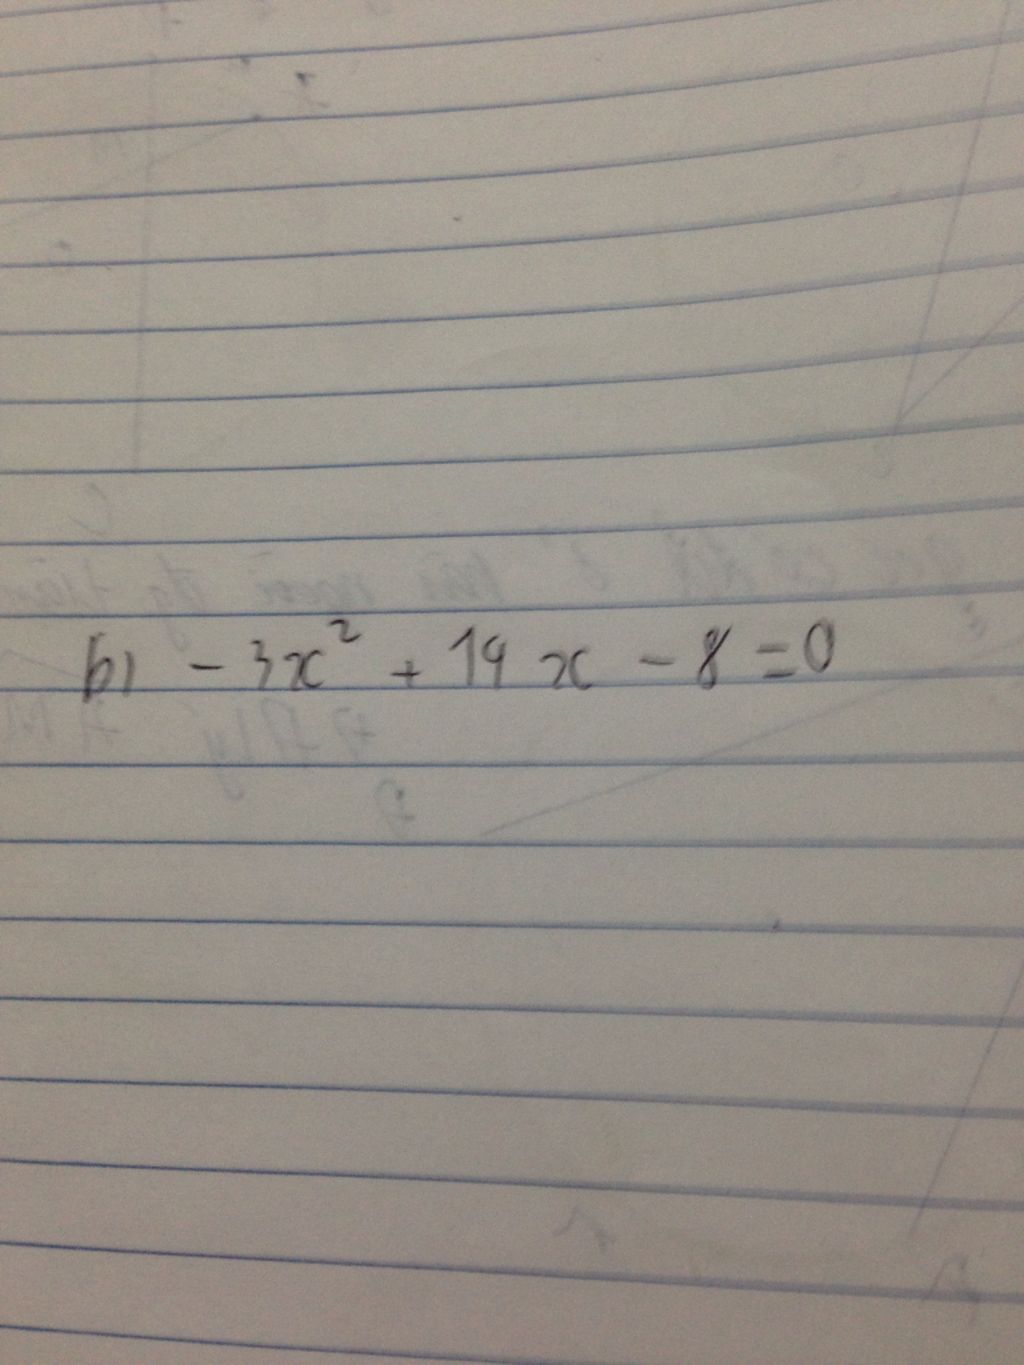 b) - 3x² + 14x - 8 = 0